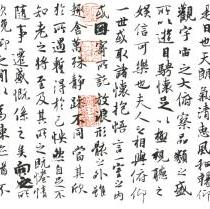 是日也天朗氣清惠風和暢仰
觀宇宙之大俯察品類之盛
所以遊目騁懷足以極視聽之
娛信可樂也夫人之相與俯仰
一世或取諸懷抱悟言一室之內
或因寄所託放浪形骸之外雖
趣舍萬殊靜躁不同當其欣
於所遇蹔得於己怏然自足不
知老之將至及其所之既惓情
隨事遷感慨係之矣向之所欣
俛仰之間以為陳迹猶